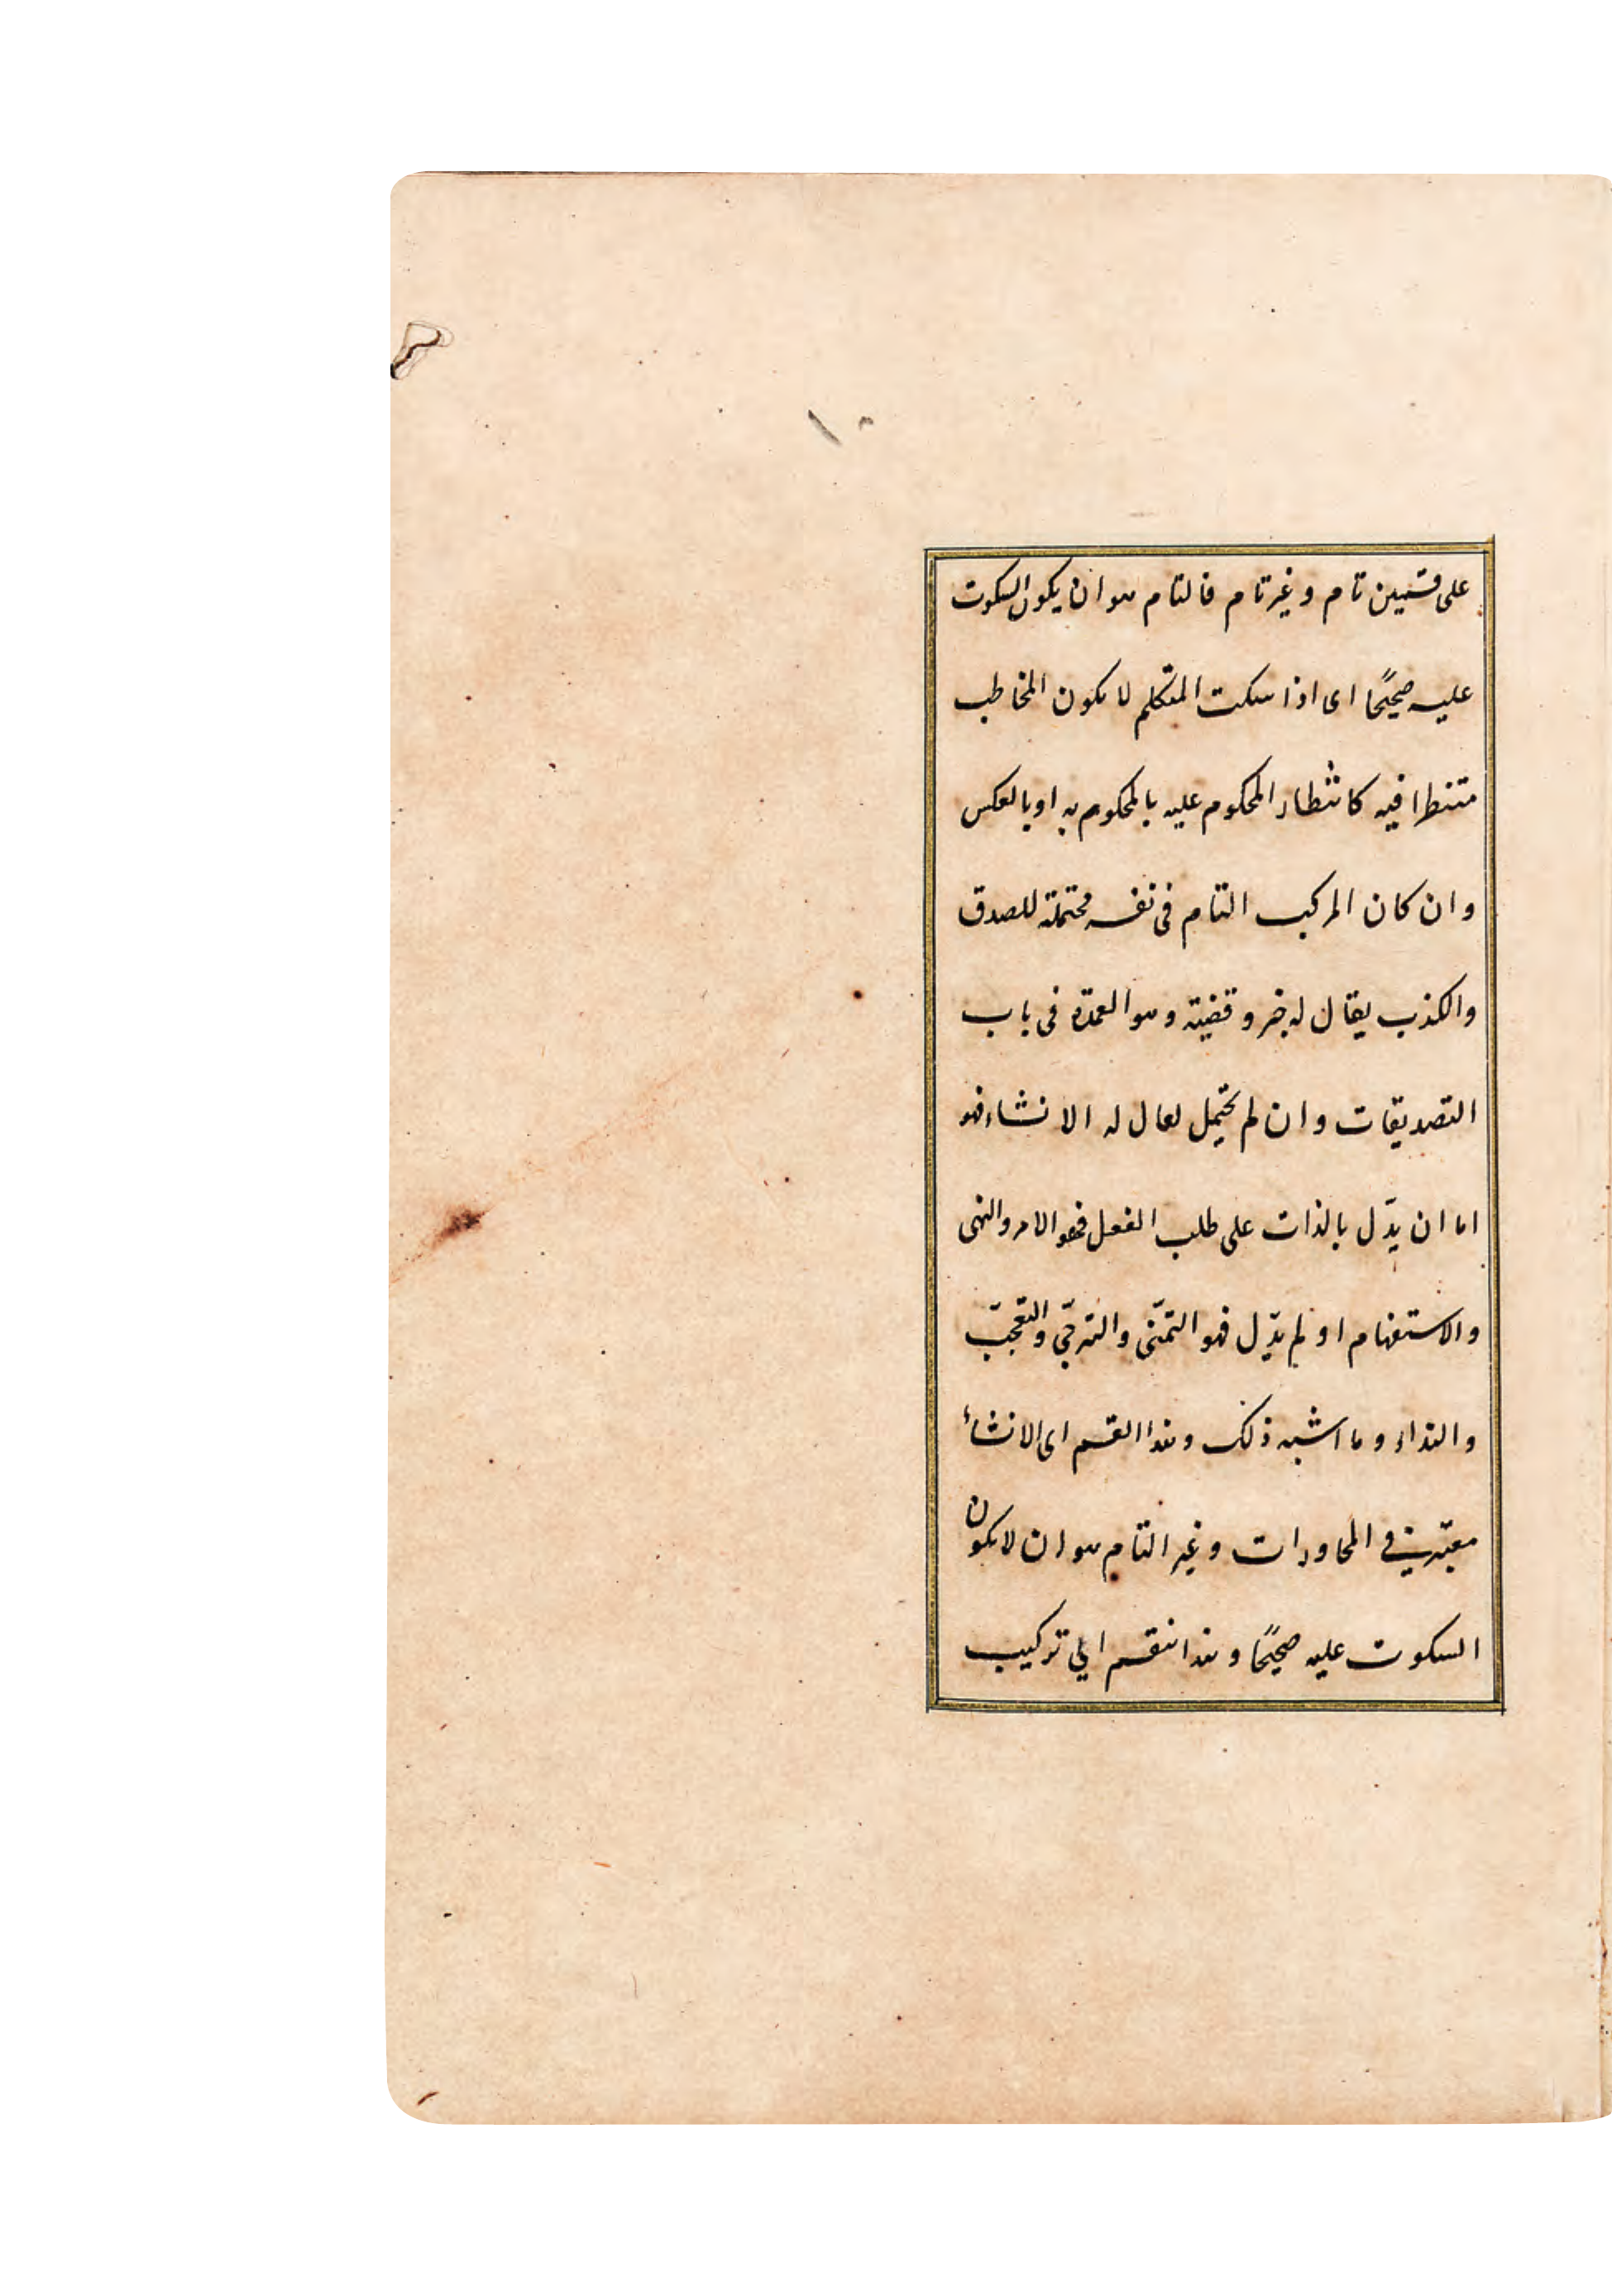 على قسمين تام وغير تام فالتام هو ان يكون السكوت
عليه صحيحًا اى اذا سكت المتكلم لا يكون المخاطب
منتظرا فيه كانتظار المحكوم عليه بالمحكوم به او بالعكس
وان كان المركب التام فى نفسه محتملة للصدق
والكذب يقال له خبر وقضية وهو العمدة فى باب
التصديقات وان لم يحتمل يقال له الانشاء فهو
اما ان يدّل بالذات على طلب الفعل فهو الامر والنهى
والاستفهام او لم يدّل فهو التمنّى والترجّى والتعجّب
والنداء وما اشبه ذلك وهذا القسم اى الانشاء
معتبر فى المحاورات وغير التام هو ان لا يكون
السكوت عليه صحيحًا وهذا ينقسم الى تركيب